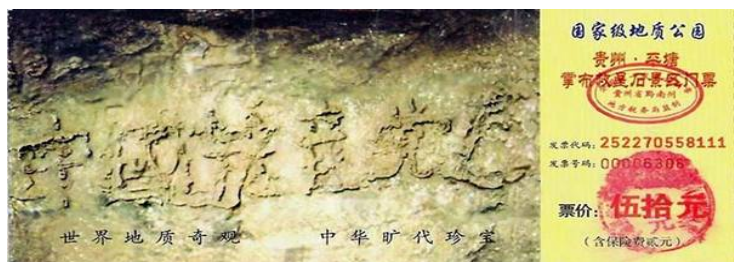 中國共产党
世界地质奇观 中华旷代珍宝
国家级地质公园
贵州·平塘
掌布救星石景区门票
贵州省黔南州
地方税务局监制
发票代码：252270558111
发票号码：00006306
票价：伍拾元
（含保险费贰元）